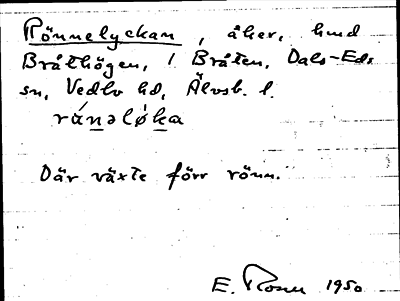 Rönnelyckan, åker, hmd
Bråthögen, 1 Bråten, Dals-Eds
sn, Vedbo hd, Älvsb. l.
ránəlø̀ka
Där växte förr rönn.
E. Rosell 1950